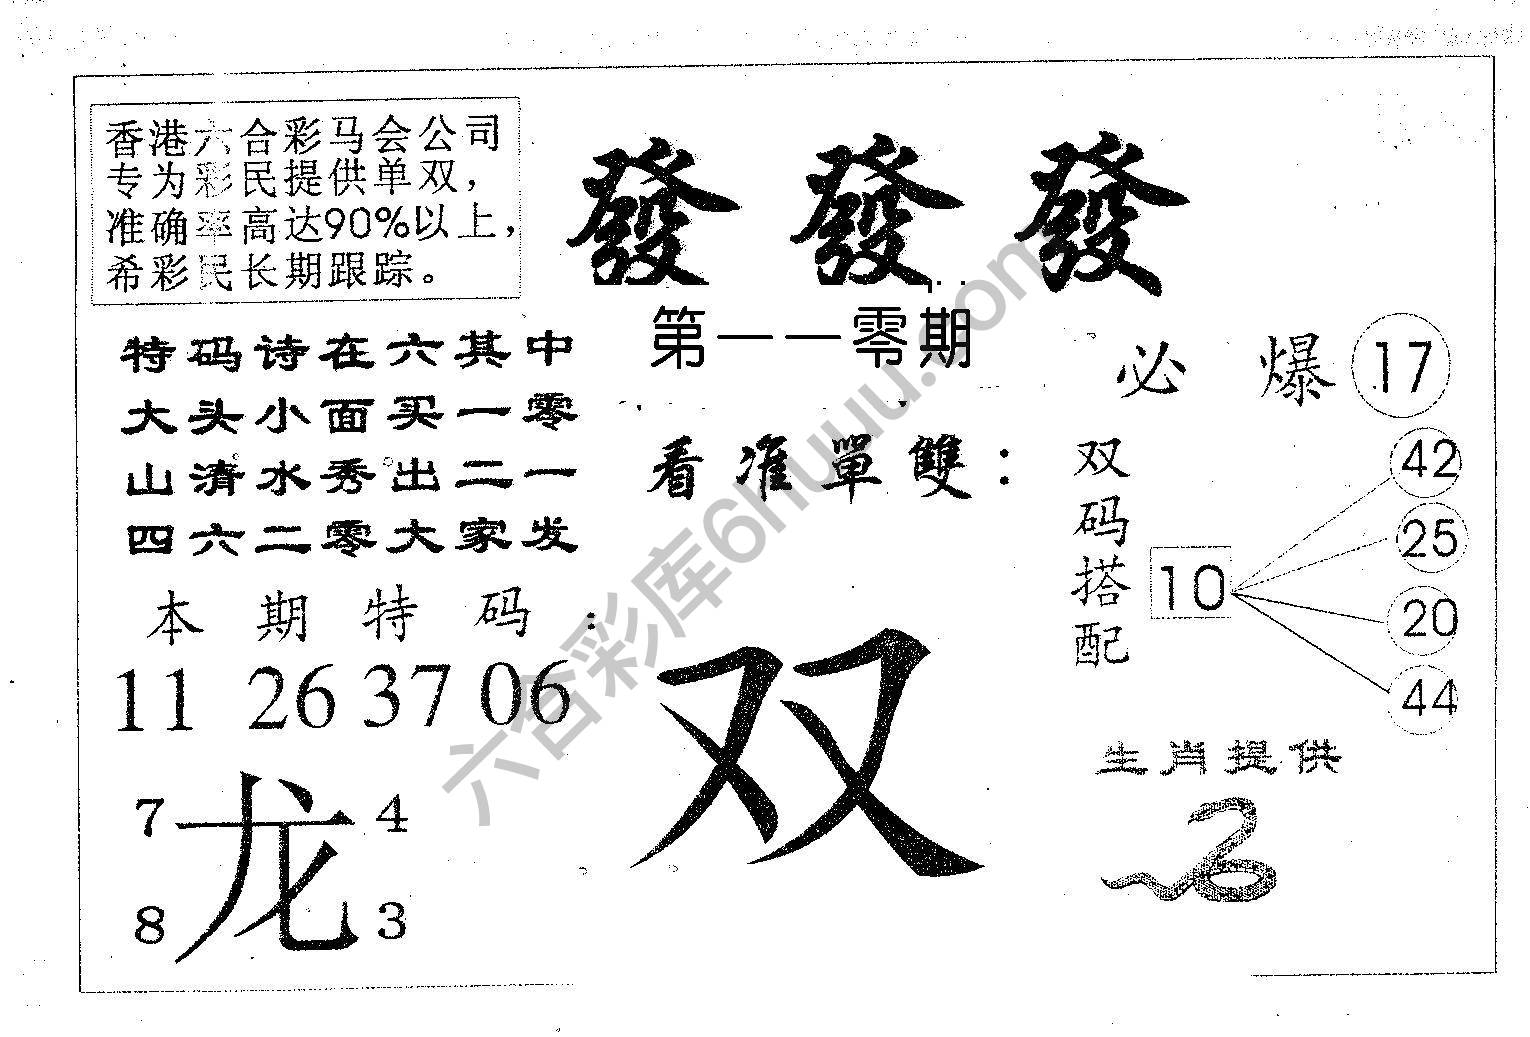 香港六合彩马会公司
专为彩民提供单双，
准确率高达90%以上，
希彩民长期跟踪。
發發發
第一一零期
特码诗在六其中
大头小面买一零
山清水秀出二一
四六二零大家发
看准單雙：
双
必爆 17
双码搭配
10
42
25
20
44
本期特码：
11 26 37 06
7 4
龙
8 3
生肖提供
六合彩库6huuu.com